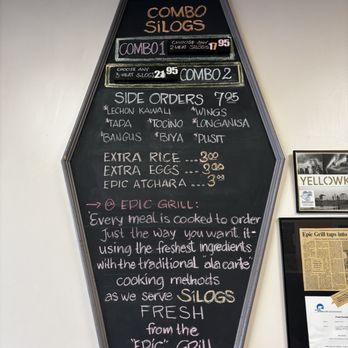 COMBO
SiLOGS
COMBO 1 CHOOSE ANY 2 MEAT SILOGS 17 95
CHOOSE ANY 3 MEAT SILOGS 95 COMBO 2
SIDE ORDERS 7.95
*LECHON KAWALI *WINGS
*TAPA *TOCINO *LONGANISA
*BANGUS *BIYA *PUSIT
EXTRA RICE --- 3.00
EXTRA EGGS ---
EPIC ATCHARA ---
→ EPIC GRILL:
"Every meal is cooked to order
Just the way you want it-
using the freshest ingredients
with the traditional "ala carte"
cooking methods
as we serve SiLOGS
FRESH
from the
"EPIC" Grill
YELLOWK
Epic Grill taps into